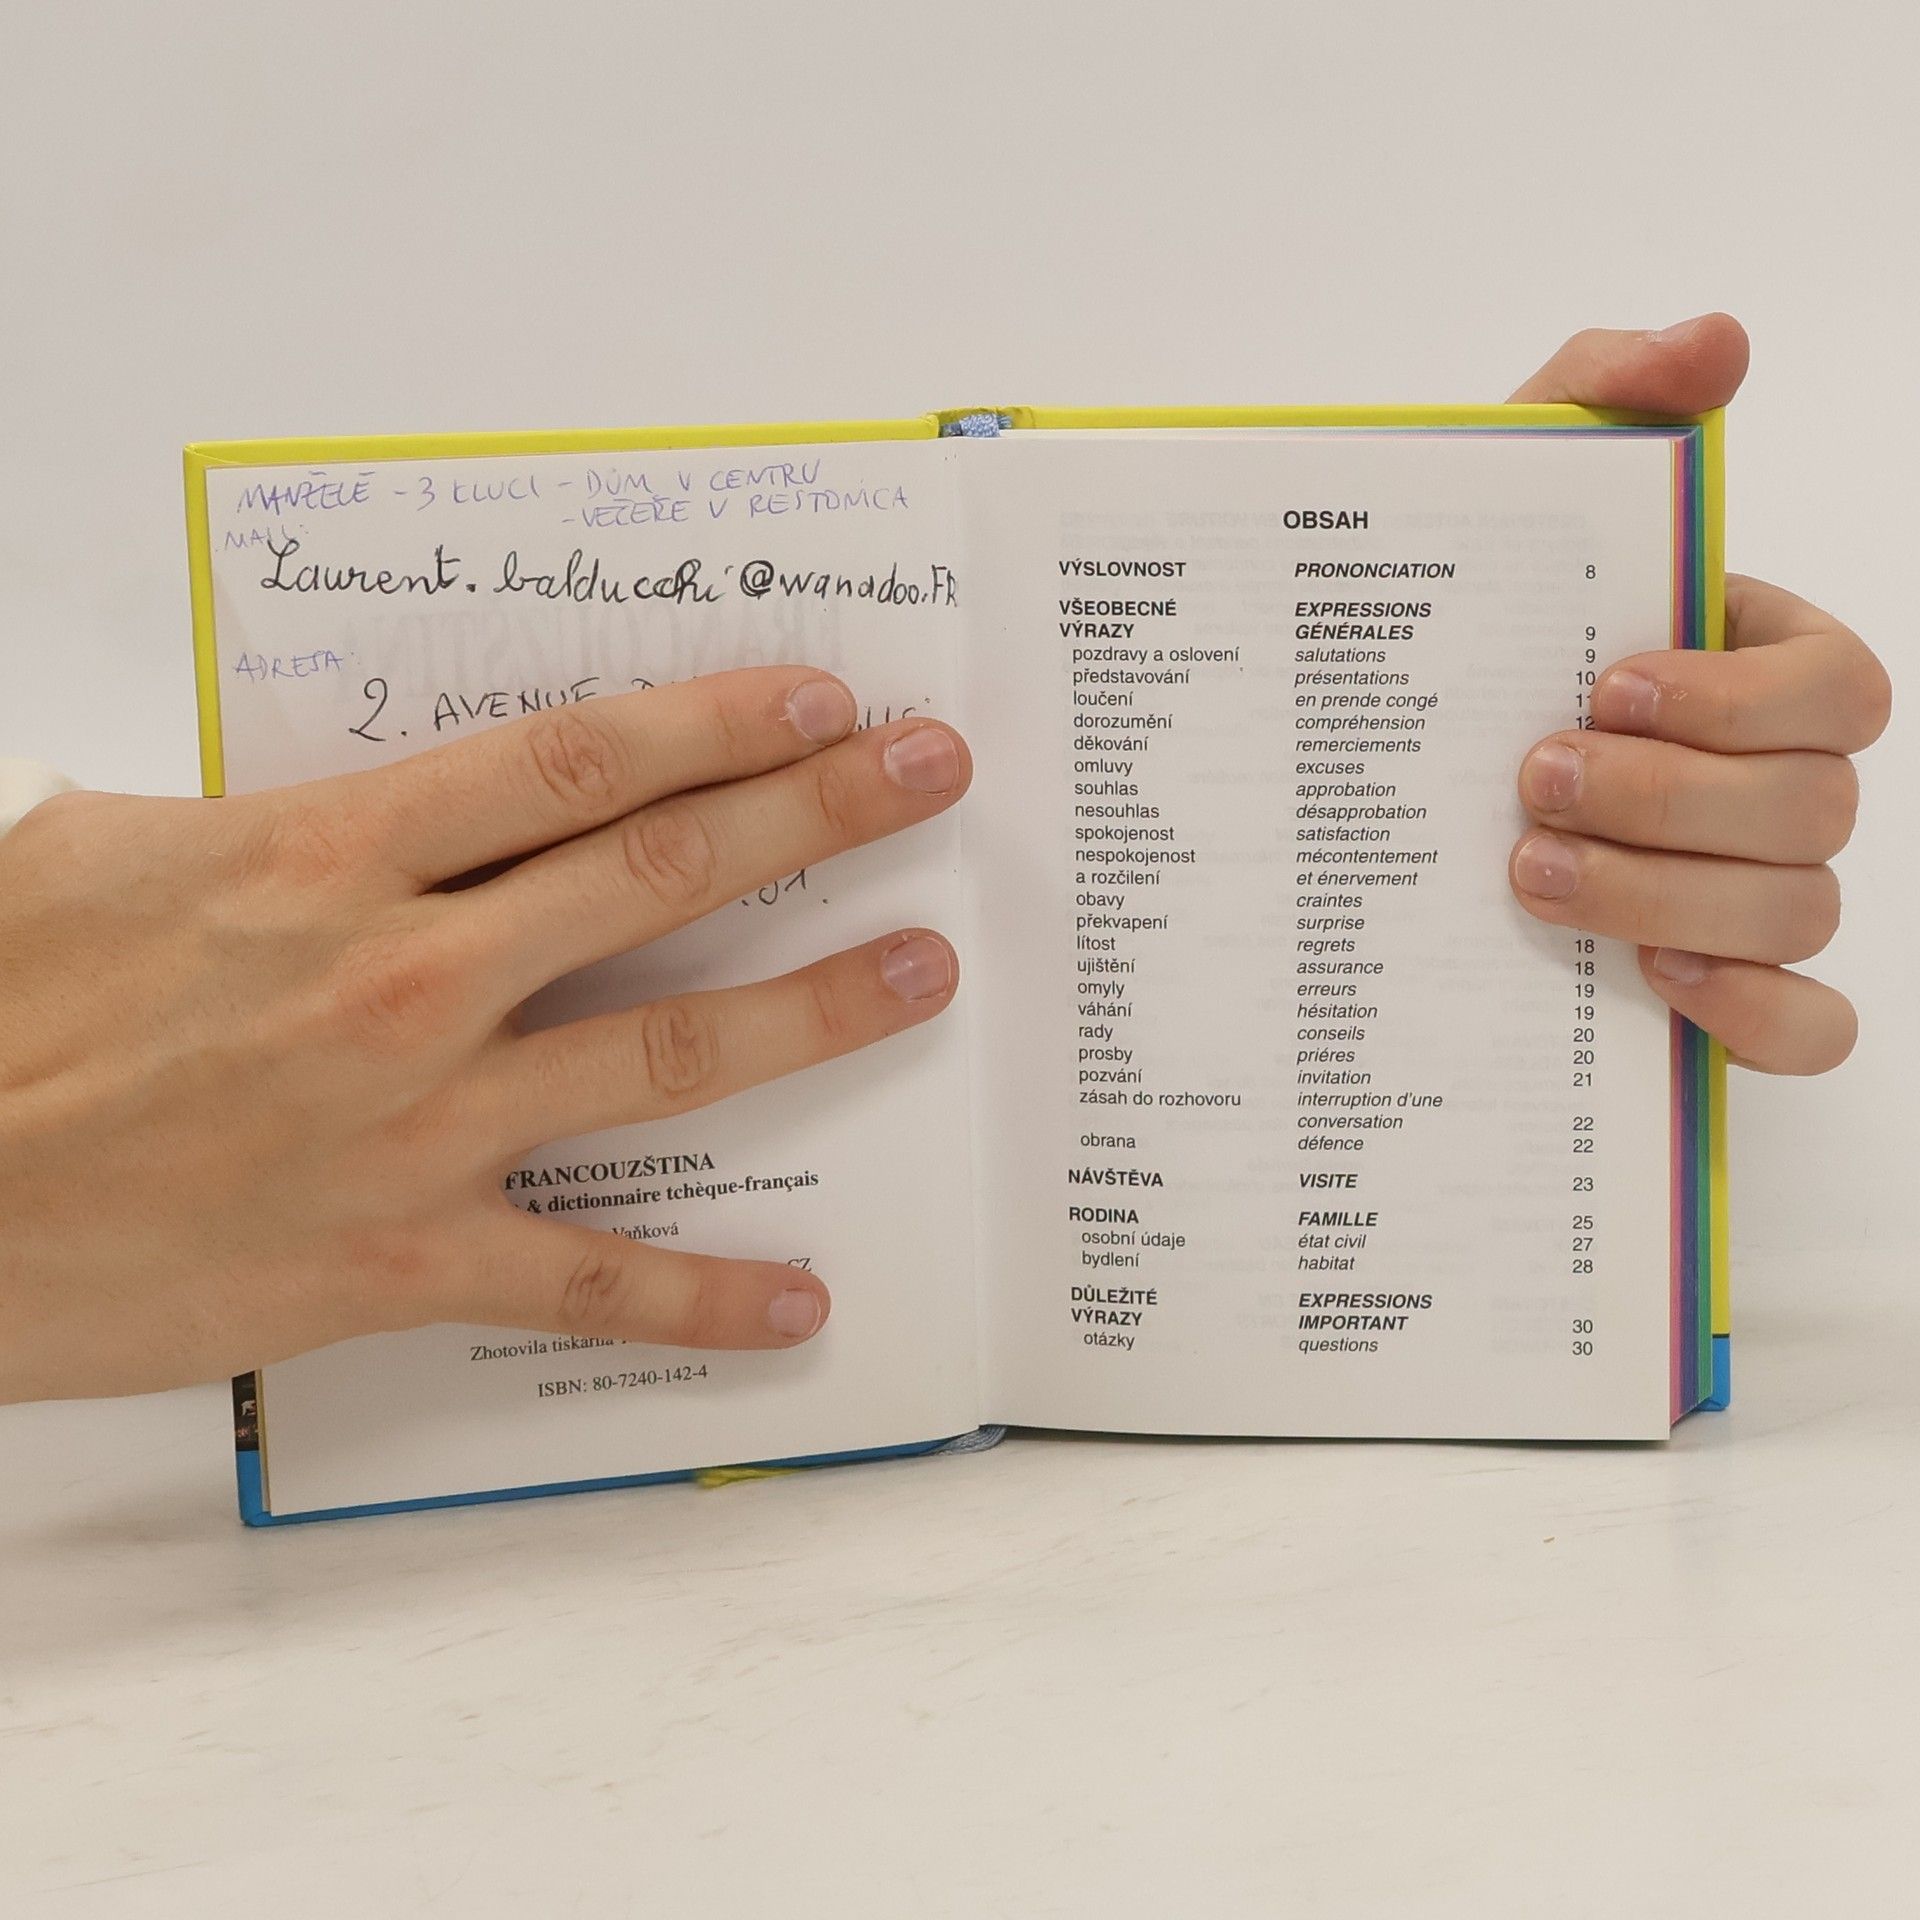 MANŽELÉ - 3 KLUCI - DŮM V CENTRU
- VEČEŘE V RESTONICA
MAIL:
Laurent.balducchi@wanadoo.FR
ADRESA:
2. AVENUE
FRANCOUZŠTINA
& dictionnaire tchèque-français
Vaňková
CZ
Zhotovila tiskárna
ISBN: 80-7240-142-4
OBSAH
VÝSLOVNOST PRONONCIATION 8
VŠEOBECNÉ EXPRESSIONS
VÝRAZY GÉNÉRALES 9
pozdravy a oslovení salutations 9
představování présentations 10
loučení en prende congé 11
dorozumění compréhension 12
děkování remerciements
omluvy excuses
souhlas approbation
nesouhlas désapprobation
spokojenost satisfaction
nespokojenost mécontentement
a rozčilení et énervement
obavy craintes
překvapení surprise
lítost regrets 18
ujištění assurance 18
omyly erreurs 19
váhání hésitation 19
rady conseils 20
prosby priéres 20
pozvání invitation 21
zásah do rozhovoru interruption d'une
conversation 22
obrana défence 22
NÁVŠTĚVA VISITE 23
RODINA FAMILLE 25
osobní údaje état civil 27
bydlení habitat 28
DŮLEŽITÉ EXPRESSIONS
VÝRAZY IMPORTANT 30
otázky questions 30